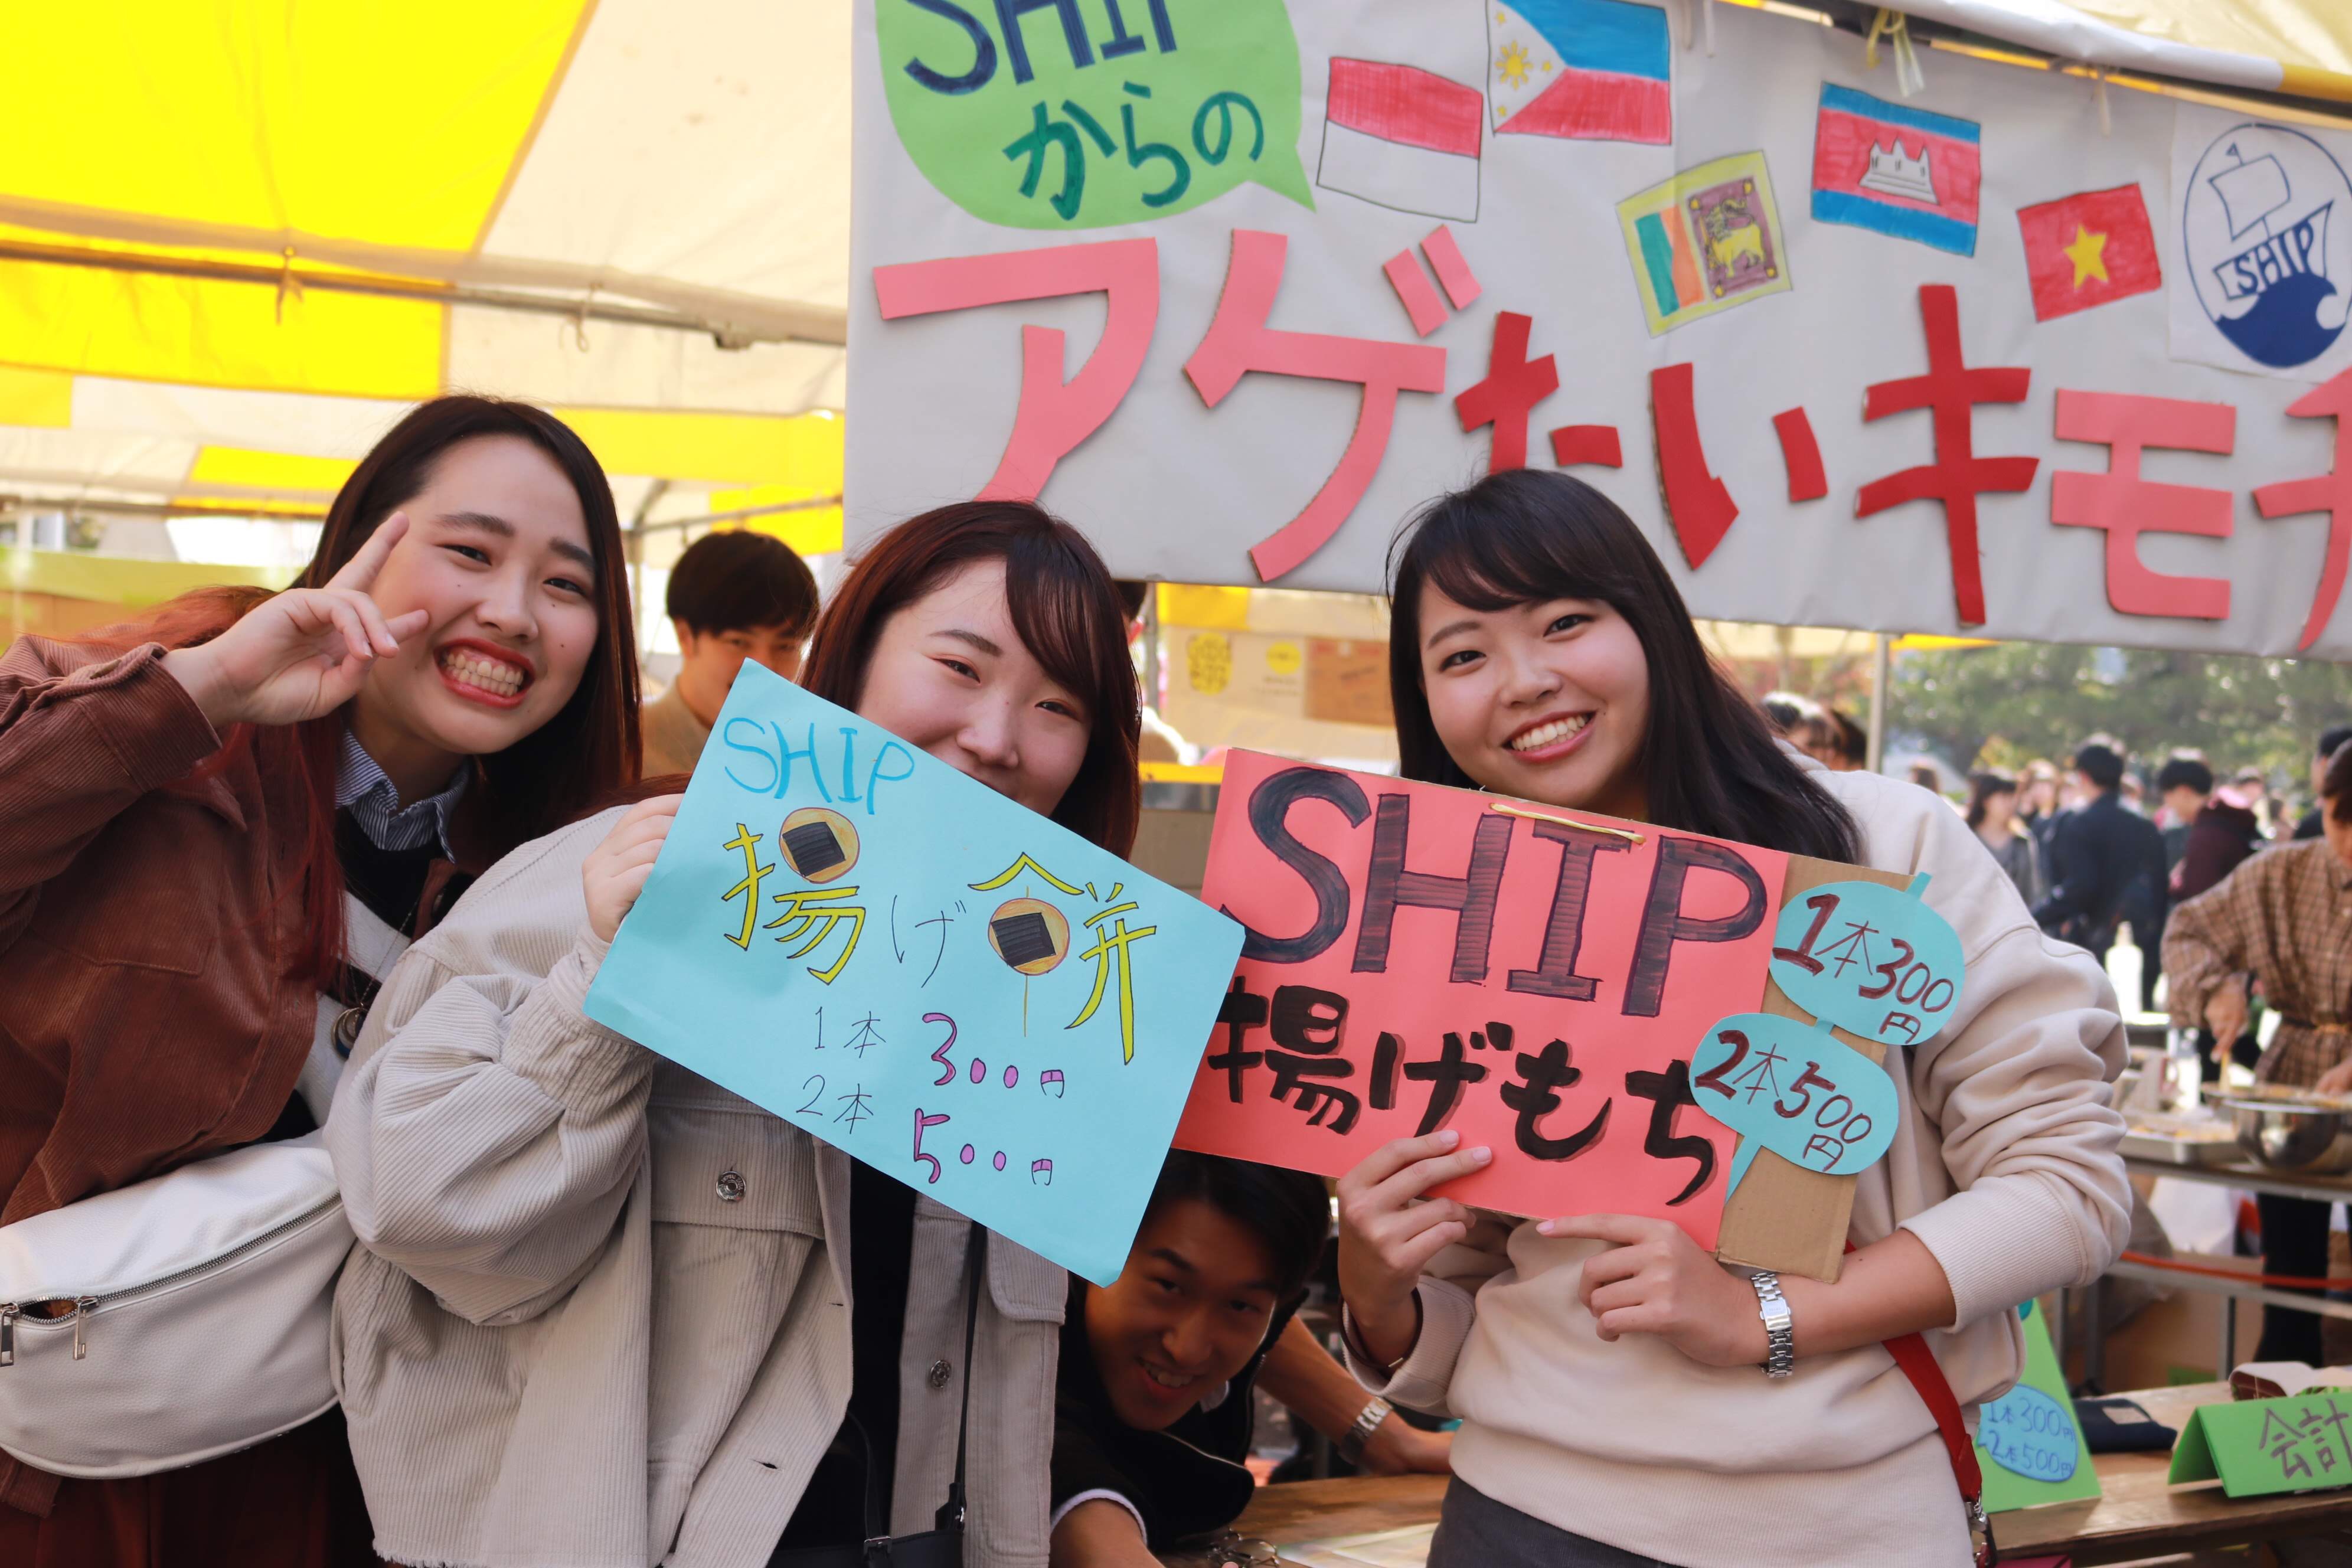 SHIP
からの
アゲたいキモチ
SHIP
SHIP
揚げ餅
1本 300円
2本 500円
SHIP
揚げもち
1本300
円
2本500
円
1本300円
2本500円
会計